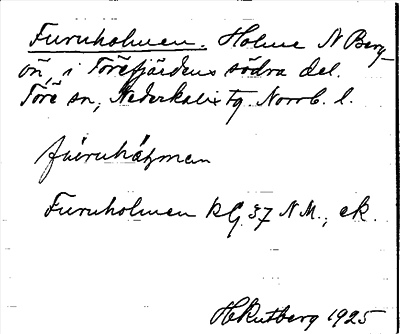 Furuholmen. Holme N Berg-
ön, i Törefjärdens södra del.
Töre sn, Nederkalix tg. Norrb. l.
Furuholmen RG. 37 N.M., ek.
HKutberg 1925